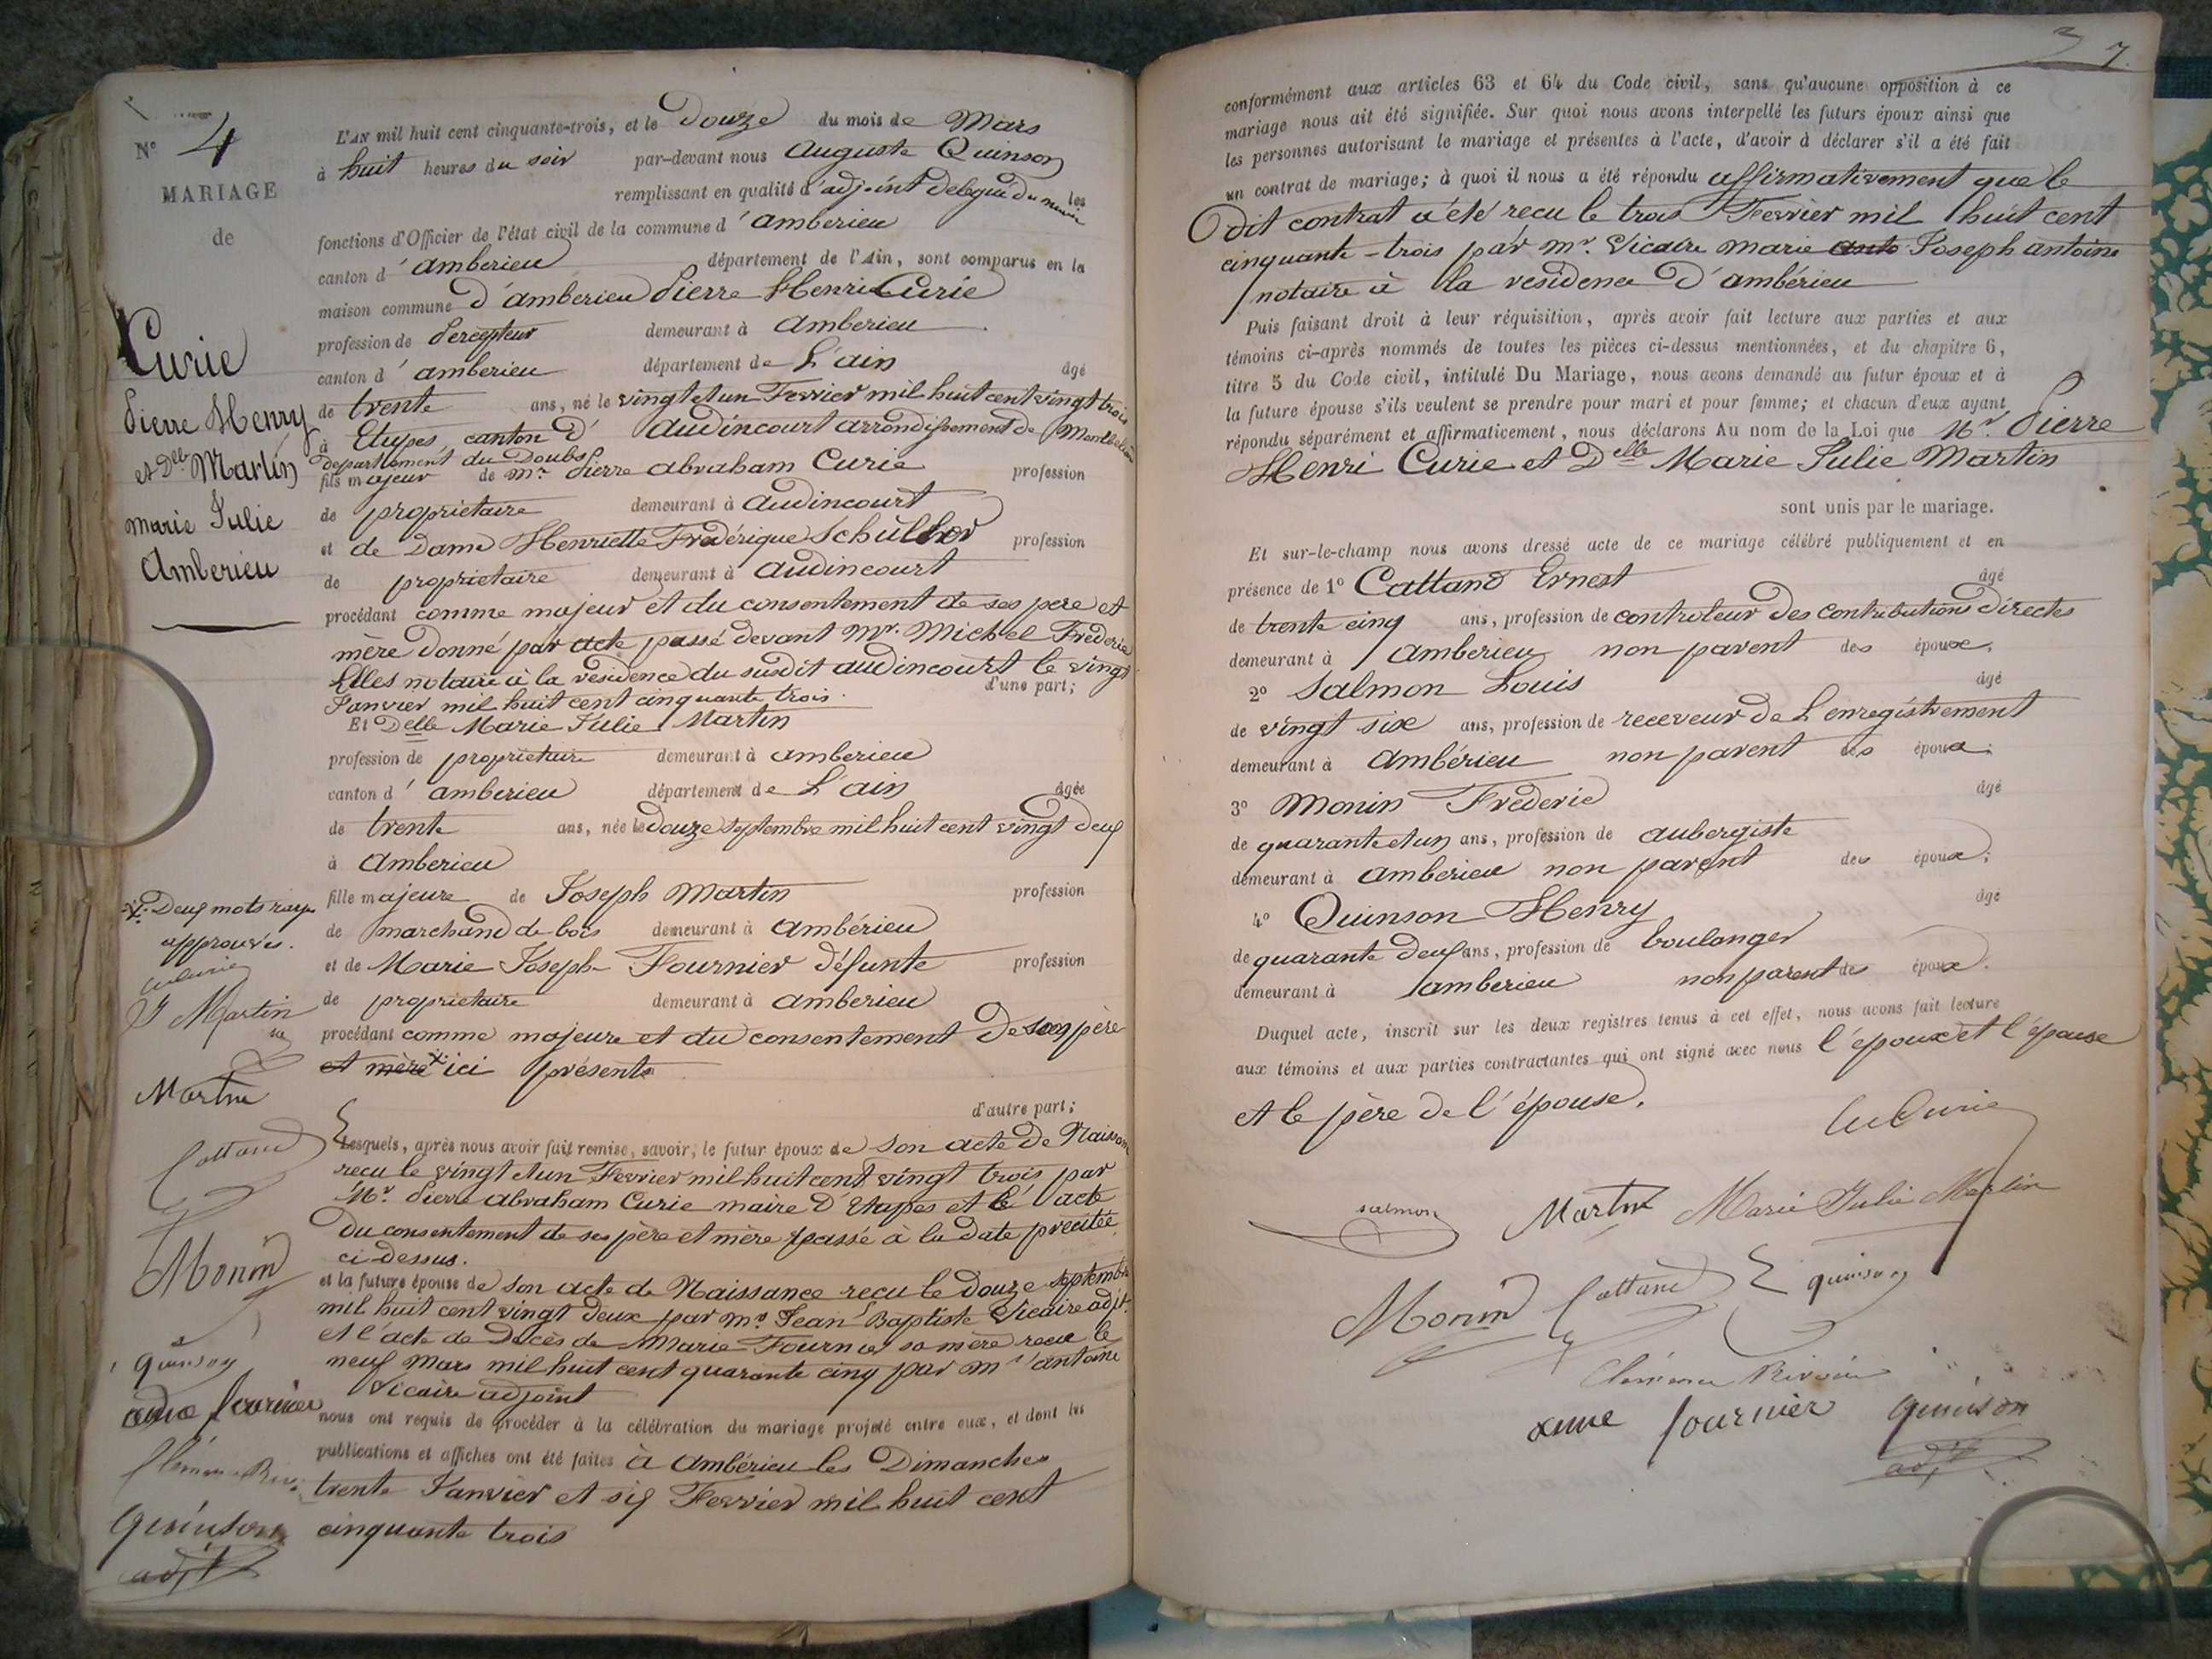 N° 4
MARIAGE
de
Curie
Pierre Henry
et Delle Martin
marie Julie
Amberieu
L'AN mil huit cent cinquante-trois, et le Douze du mois de Mars
à huit heures du soir par-devant nous Auguste Quinson
remplissant en qualité d'adjoint delegué du maire les
fonctions d'Officier de l'état civil de la commune d'amberieu
canton d'amberieu département de l'Ain, sont comparus en la
maison commune d'amberieu Pierre Henri Curie
profession de Percepteur demeurant à amberieu
canton d'amberieu département de L'ain âgé
de trente ans, né le vingt et un Fevrier mil huit cent vingt trois
à Etupes canton d'Audincourt arrondissement de Montbeliard
departement du Doubs
fils majeur de mr. Pierre abraham Curie profession
de proprietaire demeurant à audincourt
et de Dame Henriette Frédérique profession
de proprietaire demeurant à audincourt
procédant comme majeur et du consentement de ses pere et
mère donné par acte passé devant Mr. Michel Fréderic
notaire à la residence du susdit audincourt le vingt
Janvier mil huit cent cinquante trois. d'une part;
Et Delle Marie Julie Martin
profession de proprietaire demeurant à amberieu
canton d'amberieu département de L'ain âgée
de trente ans, née le Douze septembre mil huit cent vingt deux
à amberieu
fille majeure de Joseph Martin profession
de marchand de bois demeurant à ambérieu
et de Marie Joseph Fournier défunte profession
de proprietaire demeurant à amberieu
procédant comme majeure et du consentement de son père
et mère x ici présents
d'autre part;
x. Deux mots rayés
approuvés.
J Martin
Martin
Cattand
Monin
quinson
anne fournier
quinson
adjt
Lesquels, après nous avoir fait remise, savoir, le futur époux de son acte de Naissance
recu le vingt et un Fevrier mil huit cent vingt trois par
Mr. Pierre abraham Curie maire d'Etupes et l'acte
du consentement de ses père et mère passé à la date precitée
ci-dessus.
et la future épouse de son acte de Naissance recu le douze septembre
mil huit cent vingt deux par mr. Jean Baptiste Vicaire adjt.
et l'acte de Décès de Marie Fournier sa mère recu le
neuf Mars mil huit cent quarante cinq par Mr antoine
Vicaire adjoint
nous ont requis de procéder à la célébration du mariage projeté entre eux, et dont les
publications et affiches ont été faites à Ambérieu les Dimanches
trente Janvier et six Fevrier mil huit cent
cinquante trois
7
conformément aux articles 63 et 64 du Code civil, sans qu'aucune opposition à ce
mariage nous ait été signifiée. Sur quoi nous avons interpellé les futurs époux ainsi que
les personnes autorisant le mariage et présentes à l'acte, d'avoir à déclarer s'il a été fait
un contrat de mariage; à quoi il nous a été répondu affirmativement que le
dit contrat a été recu le trois Fevrier mil huit cent
cinquante-trois par mr. Vicaire Marie anto Joseph antoine
notaire à la residence d'ambérieu
Puis faisant droit à leur réquisition, après avoir fait lecture aux parties et aux
témoins ci-après nommés de toutes les pièces ci-dessus mentionnées, et du chapitre 6,
titre 5 du Code civil, intitulé Du Mariage, nous avons demandé au futur époux et à
la future épouse s'ils veulent se prendre pour mari et pour femme; et chacun d'eux ayant
répondu séparément et affirmativement, nous déclarons Au nom de la Loi que Mr. Pierre
Henri Curie et Delle Marie Julie Martin
sont unis par le mariage.
Et sur-le-champ nous avons dressé acte de ce mariage célébré publiquement et en
présence de 1° Cattand Ernest âgé
de trente cinq ans, profession de controleur des contributions directes
demeurant à amberieu non parent des époux;
2° Salmon Louis âgé
de vingt six ans, profession de receveur de L'enregistrement
demeurant à ambérieu non parent des époux;
3° Monin Frederic âgé
de quarante et un ans, profession de aubergiste
demeurant à amberieu non parent des époux;
4° Quinson Henry âgé
de quarante deux ans, profession de boulanger
demeurant à amberieu non parent des époux.
Duquel acte, inscrit sur les deux registres tenus à cet effet, nous avons fait lecture
aux témoins et aux parties contractantes qui ont signé avec nous l'époux et l'épouse
et le père de l'épouse.
Curie
salmon Martin Marie Julie Martin
Monin Cattand quinson
anne fournier quinson
adjt